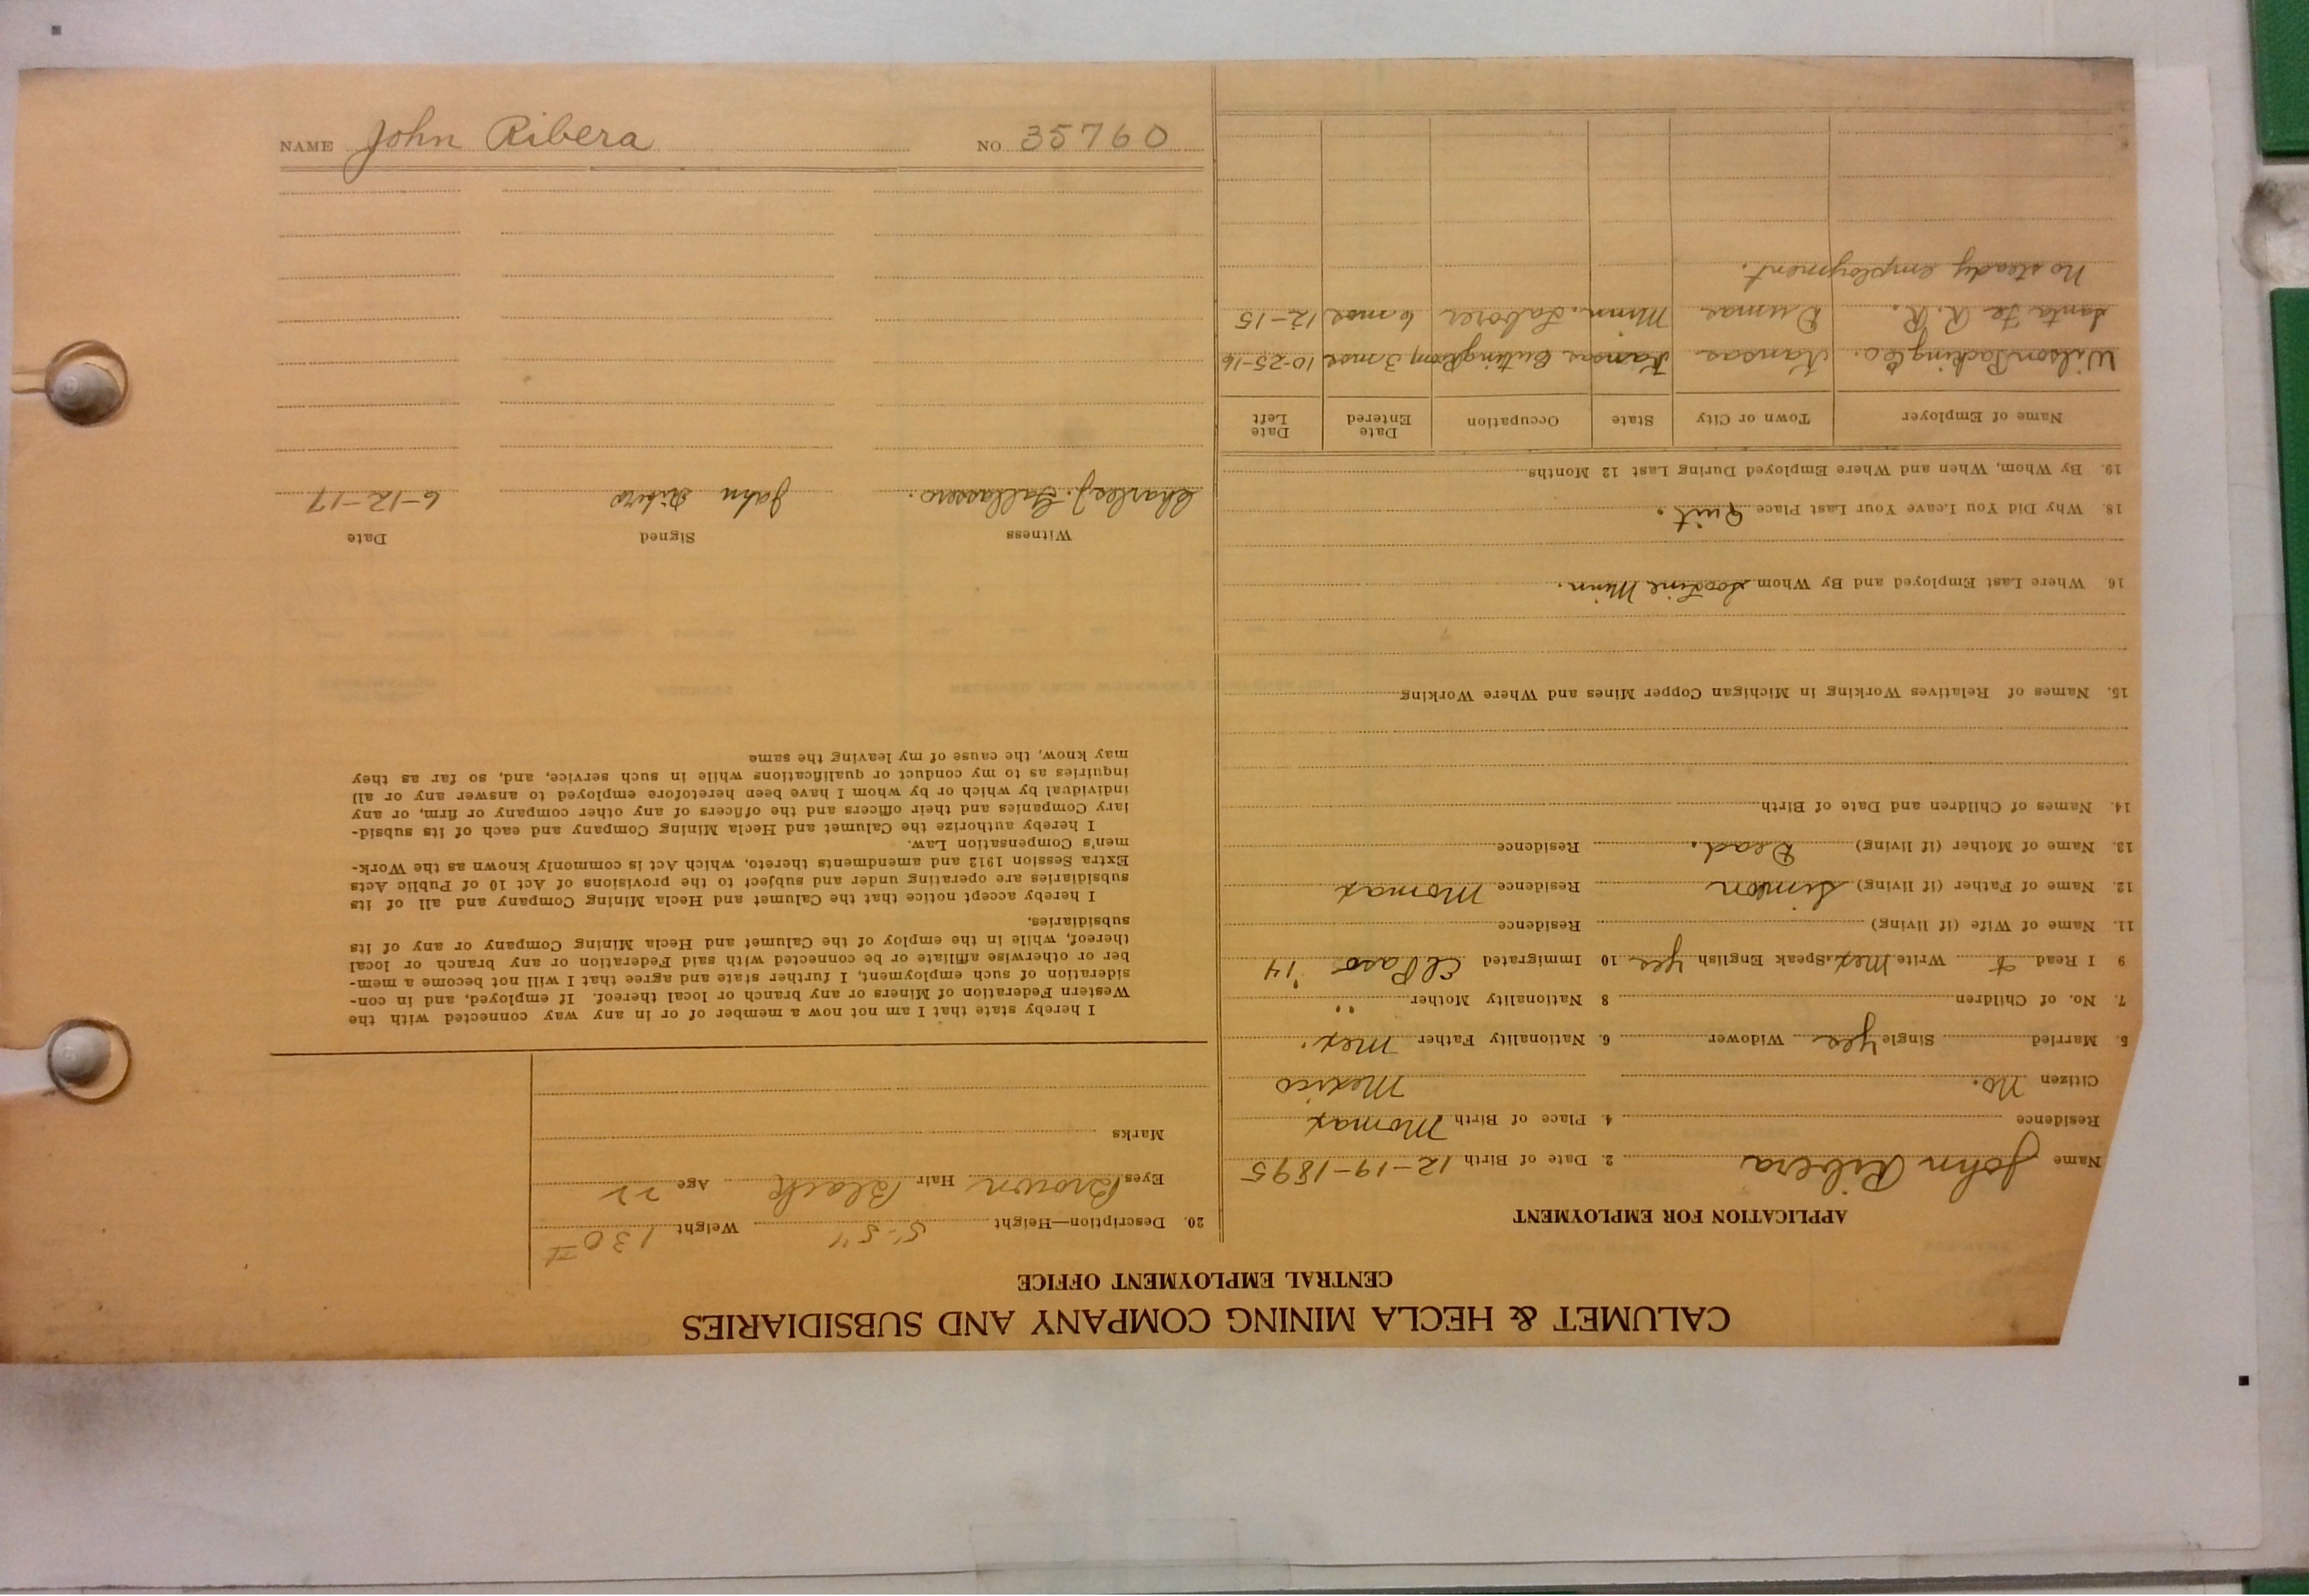 CALUMET & HECLA MINING COMPANY AND SUBSIDIARIES
CENTRAL EMPLOYMENT OFFICE
APPLICATION FOR EMPLOYMENT
Name John Ribera 2. Date of Birth 12-19-1895
Residence 4. Place of Birth Momax
Citizen No. Mexico
5. Married Single Yes Widower 6. Nationality Father Mex.
7. No. of Children 8 Nationality Mother " "
9 I Read & Write Mex. Speak English Yes 10 Immigrated El Paso '14
11. Name of Wife (if living) Residence
12. Name of Father (if living) Simeon Residence Momax
13. Name of Mother (if living) Dead. Residence
14. Names of Children and Date of Birth
15. Names of Relatives Working in Michigan Copper Mines and Where Working
16 Where Last Employed and By Whom Soo Line Minn.
18. Why Did You Leave Your Last Place Quit.
19. By Whom, When and Where Employed During Last 12 Months
Name of Employer Town or City State Occupation Date Entered Date Left
Wilson Packing Co. Kansas Kansas Cuting Room 3 mos 10-25-16
Santa Fe R. R. Dumas Minn. Laborer 6 mos 12-15
No steady employment.
20. Description—Height 5'-5" Weight 130#
Eyes Brown Hair Black Age 22
Marks
I hereby state that I am not now a member of or in any way connected with the
Western Federation of Miners or any branch or local thereof. If employed, and in con-
sideration of such employment, I further state and agree that I will not become a mem-
ber or otherwise affiliate or be connected with said Federation or any branch or local
thereof, while in the employ of the Calumet and Hecla Mining Company or any of its
subsidiaries.
I hereby accept notice that the Calumet and Hecla Mining Company and all of its
subsidiaries are operating under and subject to the provisions of Act 10 of Public Acts
Extra Session 1912 and amendments thereto, which Act is commonly known as the Work-
men's Compensation Law.
I hereby authorize the Calumet and Hecla Mining Company and each of its subsid-
iary Companies and their officers and the officers of any other company or firm, or any
individual by which or by whom I have been heretofore employed to answer any or all
inquiries as to my conduct or qualifications while in such service, and, so far as they
may know, the cause of my leaving the same
Witness Signed Date
Charles J. John Ribera 6-12-17
NAME John Ribera NO 35760